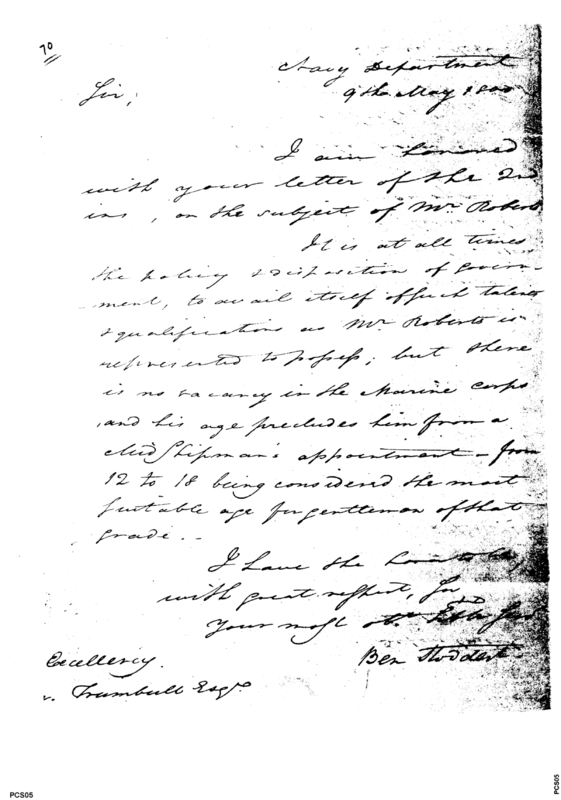 70
Navy Department
9th May 1800
Sir,
I am honored
with your letter of the 2nd
ins, on the subject of Mr Roberts
It is at all times
the policy & disposition of govern-
ment, to avail itself of such talents
& qualifications as Mr Roberts is
represented to possess; but there
is no vacancy in the Marine Corps
and his age precludes him from a
Mid Shipman's appointment - from
12 to 18 being considered the most
suitable age for gentlemen of that
grade. -
I have the honor to be,
with great respect, Sir
Your most
Ben Stoddert
Excellency
Trumbull Esqr
PCS05
PCS05